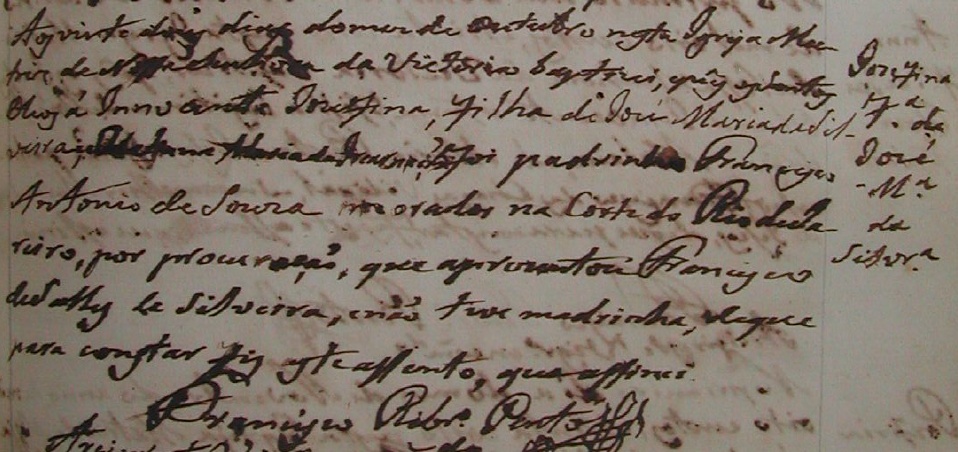 Aos vinte dous dias do mes de outubro nesta Igreja Ma-
triz de Nossa Senhora da Victoria baptisei, e pus os santos
oleos á Innocente Josefina, filha de José Maria da Sil-
veira e Anna Maria da foi padrinho Francisco
Antonio de Souza morador na Corte do Rio de Ja-
neiro, por procuração, que apresentou Francisco
de Salles e Silveira, e não teve madrinha, de que
para constar fiz este assento, que assinei.
Francisco Ribrº Pinto
Josefina
f.ª
f. de
José
M.ª
da
Silvr.ª